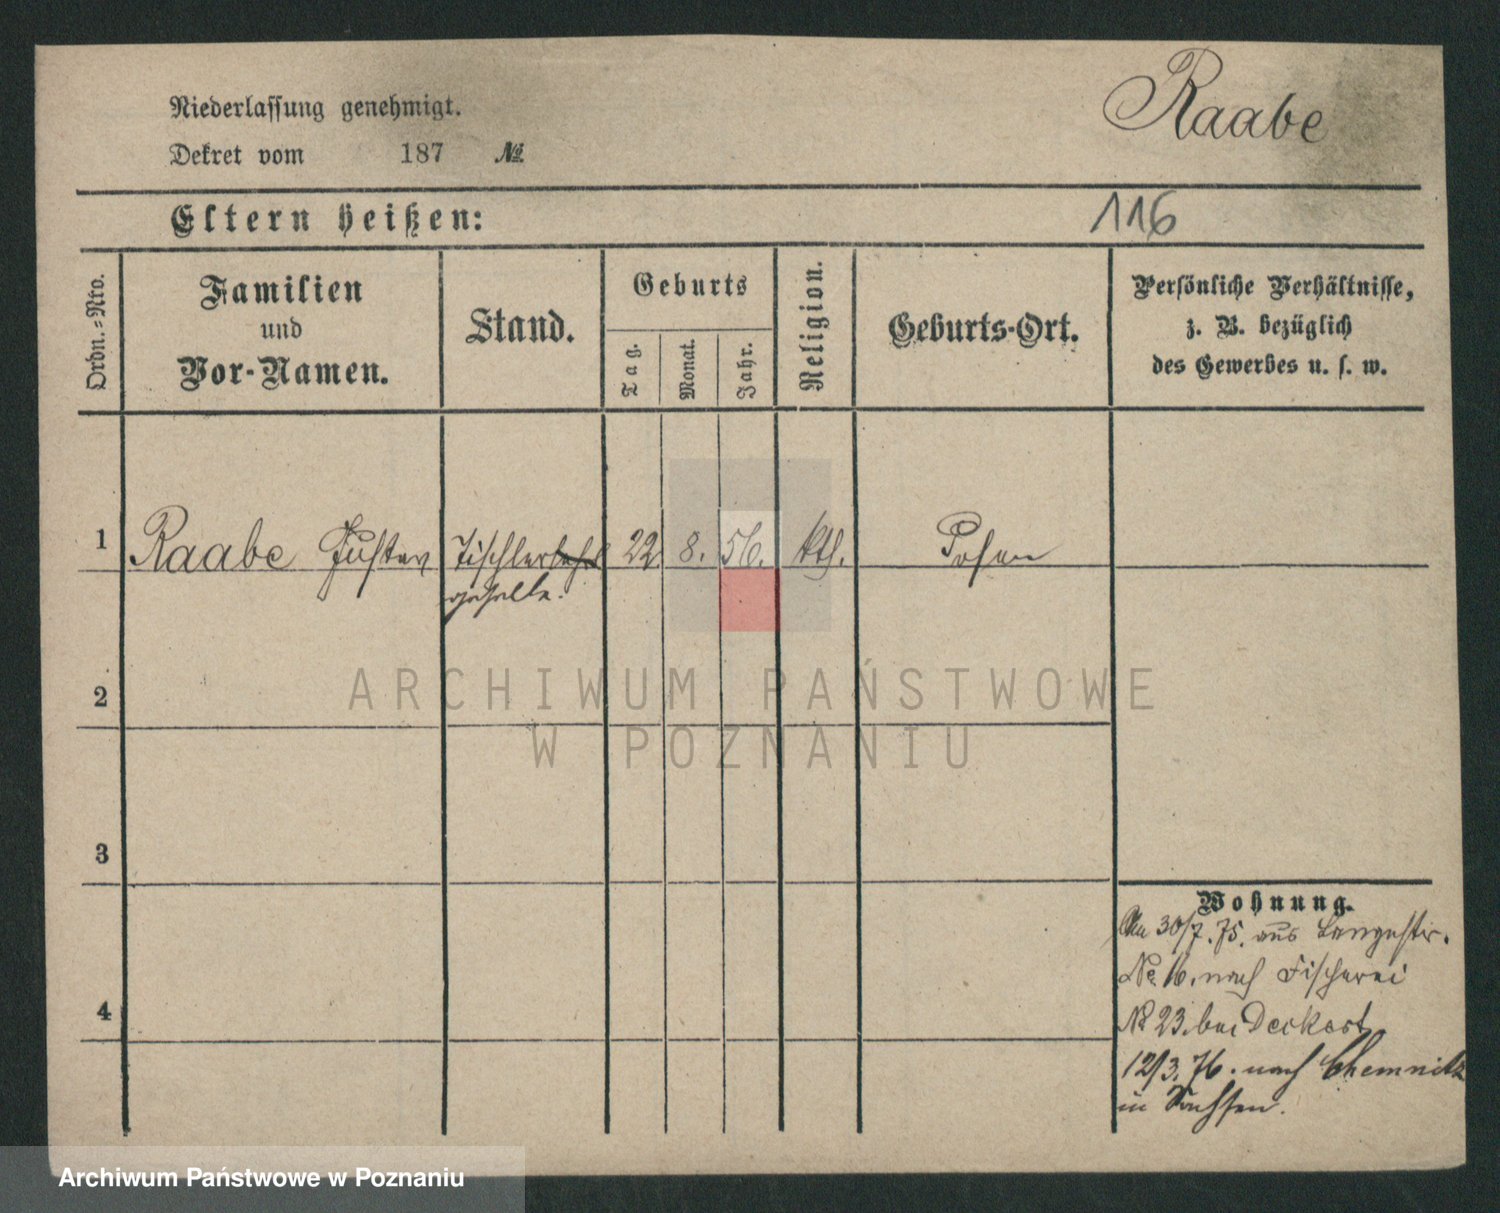 Raabe
Niederlassung genehmigt.
Dekret vom 187 №
Eltern heißen:
116
Ordn.=Nro.
Familien
und
Vor-Namen.
Stand.
Geburts
Tag.
Monat.
Jahr.
Religion.
Geburts-Ort.
Persönliche Verhältnisse,
z. B. bezüglich
des Gewerbes u. s. w.
1 Raabe Gustav Tischler 22 8. 56. kth. Posen
geselle.
2
3
4
Wohnung.
30/7. 75. aus Langestr.
No. 16. nach Fischerei
No 23. bei Deckert
12/3. 76. nach Chemnitz
in Sachsen.
ARCHIWUM PAŃSTWOWE
W POZNANIU
Archiwum Państwowe w Poznaniu